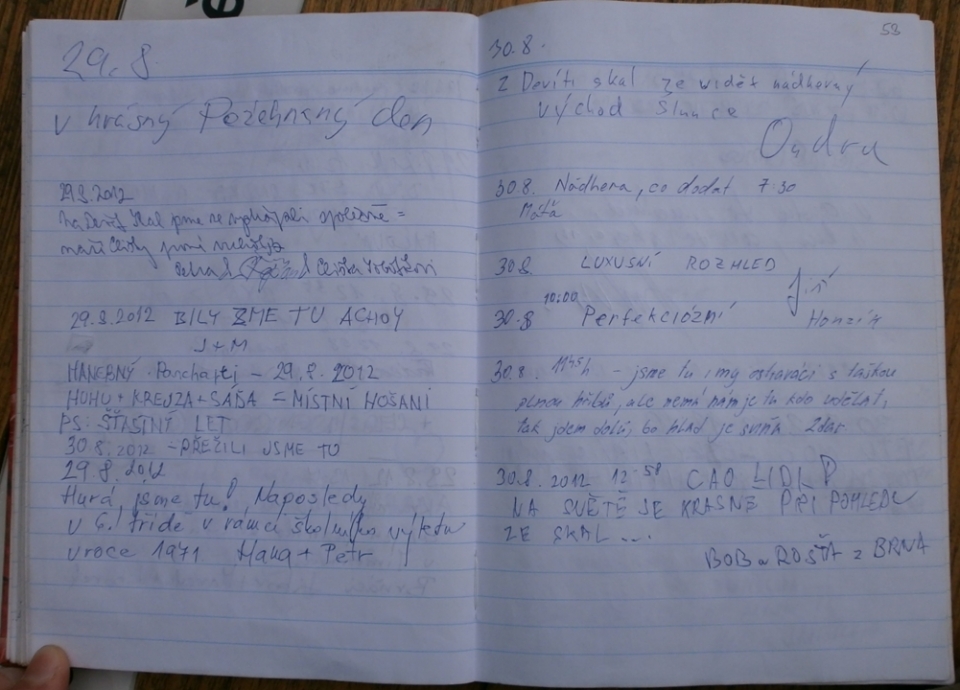 29.8.
v krásný Požehnaný den
29.8.2012
29.8.2012 BILY SME TU ACHOY
J+M
HANEBNÝ Panchartej – 29.8.2012
HUHU + KREJZA + SÁŠA = MÍSTNÍ HOŠANI
PS: ŠŤASTNÝ LET
30.8.2012 – PŘEŽILI JSME TO
29.8.2012
Hurá, jsme tu! Naposledy
v 6. třídě v rámci školního výletu
v roce 1971 Hana + Petr
53
30.8.
Z Devíti skal je vidět nádherný
východ Slunce
Ondra
30.8. Nádhera, co dodat 7:30
Máťa
30.8. LUXUSNÍ ROZHLED
Jiří
10:00
30.8 Perfekciózní Honzík
30.8. 11:45h – jsme tu i my ostraváci s taškou
plnou hřibů, ale nemá nám je tu kdo udělat,
tak jdem dolů, bo hlad je sviňa Zdar
30.8.2012 12:58 CAO LIDI
NA SVĚTĚ JE KRASNĚ PŘI POHLEDU
ZE SKAL ...
BOB a ROSŤA z BRNA